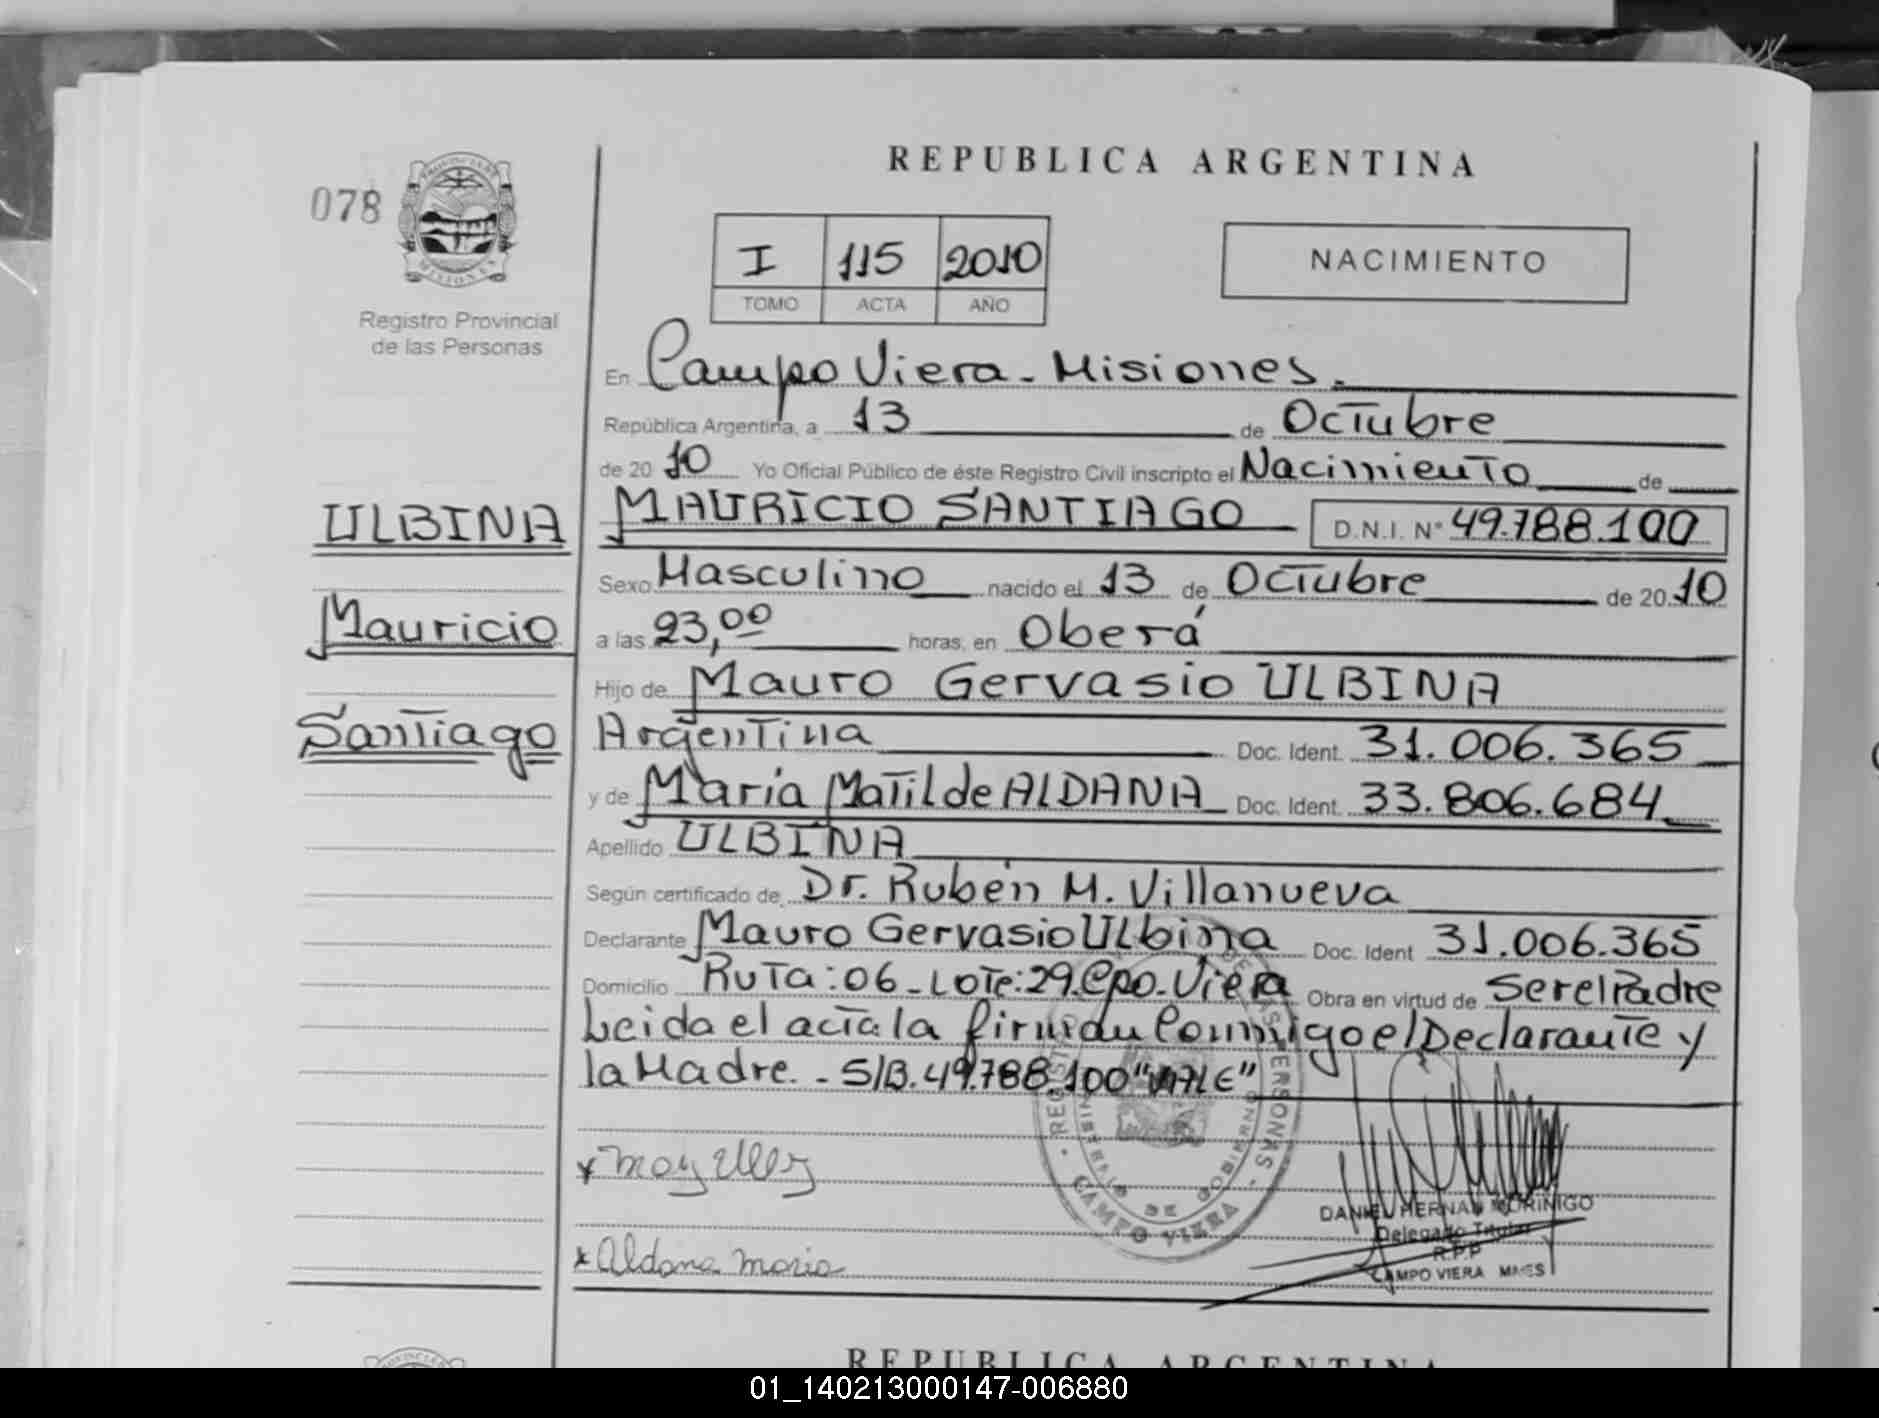 REPUBLICA ARGENTINA
078
PROVINCIA DE MISIONES
Registro Provincial
de las Personas
I 115 2010
TOMO ACTA AÑO
NACIMIENTO
En Campo Viera - Misiones.
República Argentina, a 13 de Octubre
de 20 10 Yo Oficial Público de éste Registro Civil inscripto el Nacimiento de
ULBINA
Mauricio
Santiago
MAURICIO SANTIAGO D.N.I. N° 49.788.100
Sexo Masculino nacido el 13 de Octubre de 20 10
a las 23,00 horas, en Oberá
Hijo de Mauro Gervasio ULBINA
Argentina Doc. Ident. 31.006.365
y de María Matilde ALDANA Doc. Ident. 33.806.684
Apellido ULBINA
Según certificado de Dr. Rubén M. Villanueva
Declarante Mauro Gervasio Ulbina Doc. Ident 31.006.365
Domicilio Ruta: 06 - Lote: 29. Cpo. Viera Obra en virtud de Ser el Padre
Leida el acta la firman Conmigo el Declarante y
la Madre. - S/B. 49.788.100 "VALE"
REGISTRO DE LAS PERSONAS
MINISTERIO DE GOBIERNO
CAMPO VIERA
Aldana Maria
DANIEL HERNAN MORIÑIGO
Delegado Titular
R.P.P
CAMPO VIERA MNES
REPUBLICA ARGENTINA
01_140213000147-006880